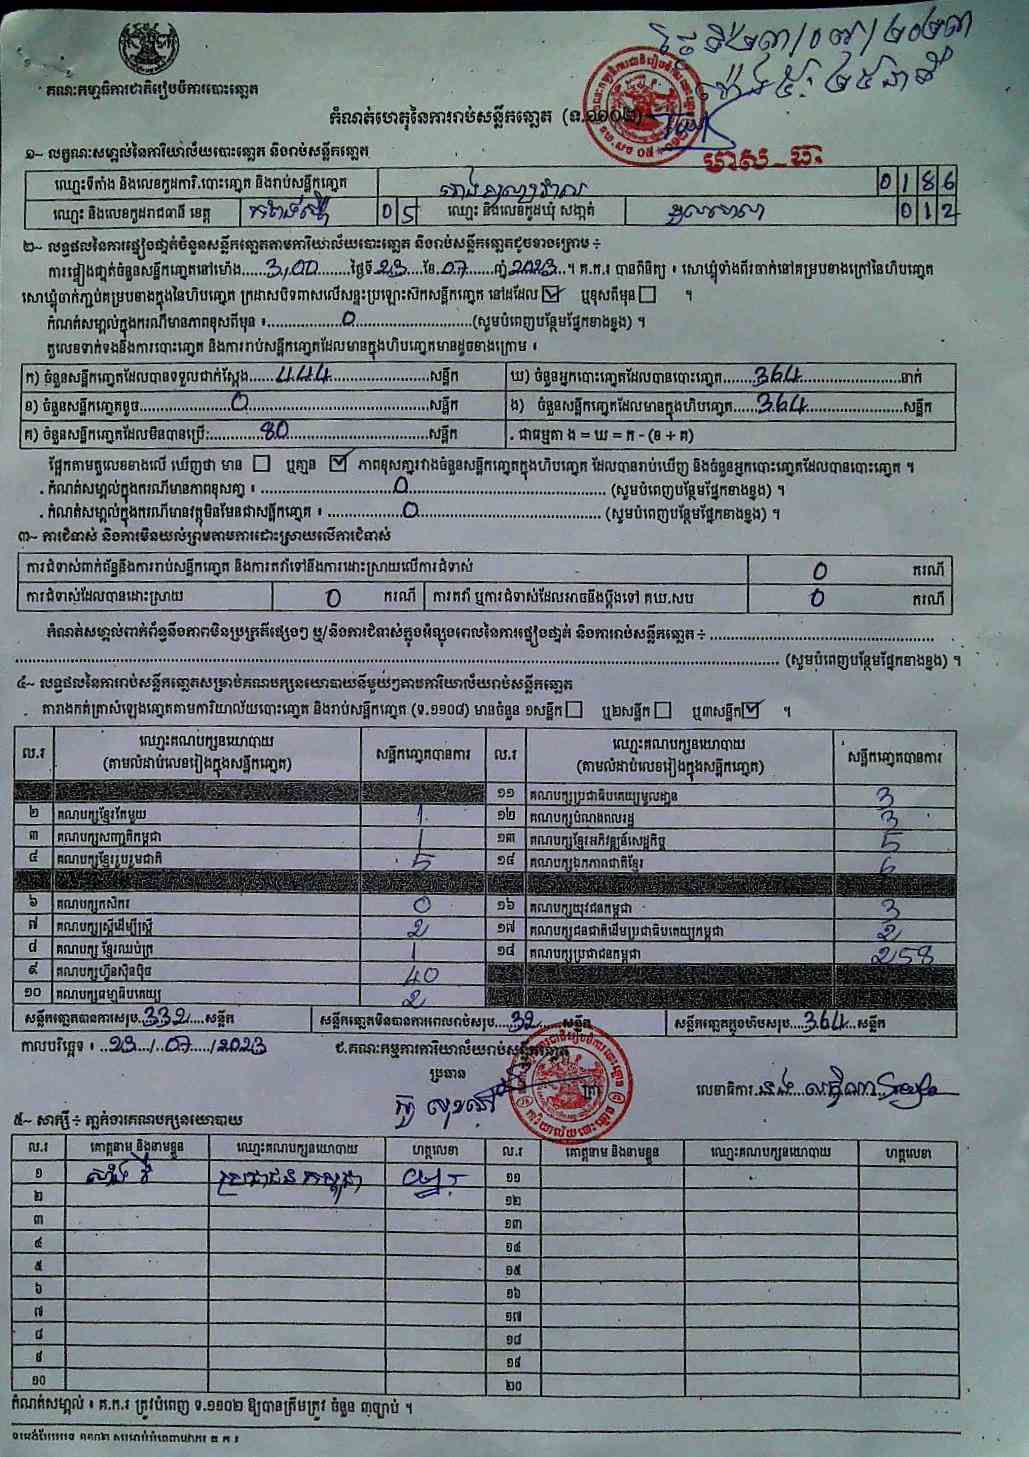 គណៈកម្មាធិការជាតិរៀបចំការបោះឆ្នោត
កំណត់ហេតុនៃការរាប់សន្លឹកឆ្នោត (ទ.១១០២)
មាស ធារ
១~ លក្ខណៈសម្គាល់នៃការិយាល័យបោះឆ្នោត និងរាប់សន្លឹកឆ្នោត
ឈ្មោះទីតាំង និងលេខកូដការិ.បោះឆ្នោត និងរាប់សន្លឹកឆ្នោត 0186
ឈ្មោះ និងលេខកូដរាជធានី ខេត្ត កំពង់ស្ពឺ 05 ឈ្មោះ និងលេខកូដឃុំ សង្កាត់ 012
២~ លទ្ធផលនៃការផ្ទៀងផ្ទាត់ចំនួនសន្លឹកឆ្នោតតាមការិយាល័យបោះឆ្នោត និងរាប់សន្លឹកឆ្នោតដូចខាងក្រោម ÷
ការផ្ទៀងផ្ទាត់ចំនួនសន្លឹកឆ្នោតនៅម៉ោង 3,00 ថ្ងៃទី 23 ខែ 07 ឆ្នាំ 2023 ។ គ.ក.រ បានពិនិត្យ ៖ សោឃ្លុំទាំងពីរចាក់នៅគម្របខាងក្រៅនៃហិបឆ្នោត
សោឃ្លុំចាក់ភ្ជាប់គម្របខាងក្នុងនៃហិបឆ្នោត ក្រដាសបិទពាសលើសន្ទះប្រឡោះស៊កសន្លឹកឆ្នោត នៅដដែល ☑ ឬខុសពីមុន ☐ ។
កំណត់សម្គាល់ក្នុងករណីមានភាពខុសពីមុន ៖ 0 (សូមបំពេញបន្ថែមផ្នែកខាងខ្នង) ។
តួលេខទាក់ទងនឹងការបោះឆ្នោត និងការរាប់សន្លឹកឆ្នោតដែលមានក្នុងហិបឆ្នោតមានដូចខាងក្រោម ៖
ក) ចំនួនសន្លឹកឆ្នោតដែលបានទទួលជាក់ស្តែង 444 សន្លឹក ឃ) ចំនួនអ្នកបោះឆ្នោតដែលបានបោះឆ្នោត 364 នាក់
ខ) ចំនួនសន្លឹកឆ្នោតខូច 0 សន្លឹក ង) ចំនួនសន្លឹកឆ្នោតដែលមានក្នុងហិបឆ្នោត 364 សន្លឹក
គ) ចំនួនសន្លឹកឆ្នោតដែលមិនបានប្រើ: 80 សន្លឹក . ជាធម្មតា ង = ឃ = ក - (ខ + គ)
ផ្អែកតាមតួលេខខាងលើ ឃើញថា មាន ☐ ឬគ្មាន ☑ ភាពខុសគ្នារវាងចំនួនសន្លឹកឆ្នោតក្នុងហិបឆ្នោត ដែលបានរាប់ឃើញ និងចំនួនអ្នកបោះឆ្នោតដែលបានបោះឆ្នោត ។
. កំណត់សម្គាល់ក្នុងករណីមានភាពខុសគ្នា ៖ 0 (សូមបំពេញបន្ថែមផ្នែកខាងខ្នង) ។
. កំណត់សម្គាល់ក្នុងករណីមានវត្ថុមិនមែនជាសន្លឹកឆ្នោត ៖ 0 (សូមបំពេញបន្ថែមផ្នែកខាងខ្នង) ។
៣~ ការជំទាស់ និងការមិនយល់ព្រមតាមការដោះស្រាយលើការជំទាស់
ការជំទាស់ពាក់ព័ន្ធនឹងការរាប់សន្លឹកឆ្នោត និងការតវ៉ាទៅនឹងការដោះស្រាយលើការជំទាស់ 0 ករណី
ការជំទាស់ដែលបានដោះស្រាយ 0 ករណី ការតវ៉ា ឬការជំទាស់ដែលអាចនឹងប្តឹងទៅ គឃ.សប 0 ករណី
កំណត់សម្គាល់ពាក់ព័ន្ធនឹងភាពមិនប្រក្រតីផ្សេងៗ ឬ/និងការជំទាស់ក្នុងអំឡុងពេលនៃការផ្ទៀងផ្ទាត់ និងការរាប់សន្លឹកឆ្នោត ÷
(សូមបំពេញបន្ថែមផ្នែកខាងខ្នង) ។
៤~ លទ្ធផលនៃការរាប់សន្លឹកឆ្នោតសម្រាប់គណបក្សនយោបាយនីមួយៗតាមការិយាល័យរាប់សន្លឹកឆ្នោត
តារាងកត់ត្រាសំឡេងឆ្នោតតាមការិយាល័យបោះឆ្នោត និងរាប់សន្លឹកឆ្នោត (ទ.១១០៨) មានចំនួន ១សន្លឹក ☐ ឬ២សន្លឹក ☐ ឬ៣សន្លឹក ☑ ។
ល.រ ឈ្មោះគណបក្សនយោបាយ (តាមលំដាប់លេខរៀងក្នុងសន្លឹកឆ្នោត) សន្លឹកឆ្នោតបានការ ល.រ ឈ្មោះគណបក្សនយោបាយ (តាមលំដាប់លេខរៀងក្នុងសន្លឹកឆ្នោត) សន្លឹកឆ្នោតបានការ
១១ គណបក្សប្រជាធិបតេយ្យមូលដ្ឋាន 3
២ គណបក្សខ្មែរតែមួយ 1 ១២ គណបក្សបំណងពលរដ្ឋ 3
៣ គណបក្សសញ្ជាតិកម្ពុជា 1 ១៣ គណបក្សខ្មែរអភិវឌ្ឍន៍សេដ្ឋកិច្ច 5
៤ គណបក្សខ្មែររួបរួមជាតិ 5 ១៤ គណបក្សឯកភាពជាតិខ្មែរ 6
៦ គណបក្សកសិករ 0 ១៦ គណបក្សយុវជនកម្ពុជា 3
៧ គណបក្សស្ត្រីដើម្បីស្ត្រី 2 ១៧ គណបក្សជនជាតិដើមប្រជាធិបតេយ្យកម្ពុជា 2
៨ គណបក្ស ខ្មែរឈប់ក្រ 1 ១៨ គណបក្សប្រជាជនកម្ពុជា 258
៩ គណបក្សហ្វ៊ុនស៊ិនប៉ិច 40
១០ គណបក្សធម្មាធិបតេយ្យ 2
សន្លឹកឆ្នោតបានការសរុប 332 សន្លឹក សន្លឹកឆ្នោតមិនបានការពេលរាប់សរុប 32 សន្លឹក សន្លឹកឆ្នោតក្នុងហិបសរុប 364 សន្លឹក
កាលបរិច្ឆេទ ៖ 23/07/2023 ជ.គណៈកម្មការការិយាល័យរាប់សន្លឹកឆ្នោត
ប្រធាន
លេខាធិការ
៥~ សាក្សី ÷ ភ្នាក់ងារគណបក្សនយោបាយ
ល.រ គោត្តនាម និងនាមខ្លួន ឈ្មោះគណបក្សនយោបាយ ហត្ថលេខា ល.រ គោត្តនាម និងនាមខ្លួន ឈ្មោះគណបក្សនយោបាយ ហត្ថលេខា
១ ប្រជាជនកម្ពុជា ១១
២ ១២
៣ ១៣
៤ ១៤
៥ ១៥
៦ ១៦
៧ ១៧
៨ ១៨
៩ ១៩
១០ ២០
កំណត់សម្គាល់ ៖ គ.ក.រ ត្រូវបំពេញ ទ.១១០២ ឱ្យបានត្រឹមត្រូវ ចំនួន ៣ច្បាប់ ។